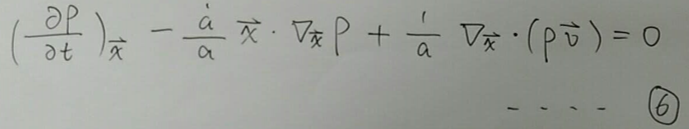 (∂ρ/∂t)_x⃗ − ȧ/a x⃗ · ∇_x⃗ ρ + 1/a ∇_x⃗ · (ρv⃗) = 0
- - - - ⑥